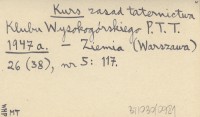 Kurs zasad taternictwa
Klubu Wysokogórskiego P.T.T.
1947 a. — Ziemia (Warszawa)
26 (38), nr 5: 117.
MT